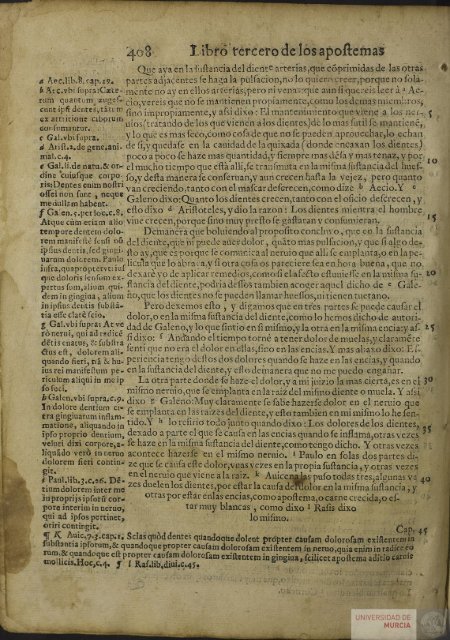 408 Libro tercero de los apostemas
Que aya en la sustancia del diente arterias, que cõprimidas de las otras
partes adjacentes se haga la pulsacion, no lo quiero creer, porque no sola-
mente no ay en ellos arterias, pero ni venas: que aun si quereis leer á Ae-
cio, vereis que no se mantienen propiamente, como los demas miembros,
sino impropiamente, y assi dixo: El mantenimiento que viene a los ner-
uios, tratando de los que vienen a los dientes, de lo mas sutil se mantienẽ,
y lo que es mas seco, como cosa de que no se pueden aprouechar, lo echan
de si, y quedase en la cauidad de la quixada (donde encaxan los dientes)
poco a poco se haze mas quantidad, y siempre mas dẽsa y mas tenaz, y por
el mucho tiempo que està alli, se trasmuta en la misma sustancia del hues-
so, y desta manera se conseruan, y aun crecen hasta la vejez, pero quanto
van creciendo, tanto con el mascar descrecen, como dize b Aecio. Y c
Galeno dixo: Quanto los dientes crecen, tanto con el oficio descrecen, y
esto dixo d Aristoteles, y dio la razon: Los dientes mientra el hombre
viue crecen, porque sino muy presto se gastaran y consumieran.
Demanera que boluiendo al proposito concluyo, que en la sustancia
del diente, que ni puede auer dolor, quãto mas pulsacion, y que si algo de-
sto ay, que es porque se comunica al neruio que alli se emplanta, o en la pe-
licula que lo abraza, y si otra cosa os pareciere sea en hora buena, que no
dexarè yo de aplicar remedios, como si el afecto estuuiesse en la misma su-
stancia del diente, podria dessos tambien acoger aquel dicho de e Gale-
no, que los dientes no se pueden llamar huessos, ni tienen tuetano.
Pero dexemos esto, y digamos que en tres partes se puede causar el
dolor, o en la misma sustancia del diente, como lo hemos dicho de autori-
dad de Galeno, y lo que sintio en si mismo, y la otra en la misma encia: y as-
si dixo: f Andando el tiempo tornè a tener dolor de muelas, y claramẽte
senti que no era el dolor en ellas, sino en las encias. Y mas abaxo dixo: Ex-
periencia tengo destos dos dolores quando se haze en las encias, y quando
en la sustancia del diente, y esto demanera que no me puedo engañar.
La otra parte donde se haze el dolor, y a mi juizio la mas cierta, es en el
mismo neruio, que se emplanta en la raiz del mismo diente o muela. Y assi
dixo g Galeno: Muy claramente se sabe hazerse dolor en el neruio que
se emplanta en las raizes del diente, y esto tambien en mi mismo lo he sen-
tido. Y h lo refirio todo junto quando dixo: Los dolores de los dientes,
dexado a parte el que se causa en las encias quando se inflama, otras vezes
se haze en la misma sustancia del diente, como tengo dicho. Y otras vezes
acontece hazerse en el mismo neruio. i Paulo en solas dos partes di-
ze que se causa este dolor, vnas vezes en la propia sustancia, y otras vezes
en el neruio que viene a la raiz. k Auicena las puso todas tres, algunas ve
zes duelen los dientes, por estar la causa del dolor en la misma sustancia, y
otras por estar en las encias, como apostema, o carne crecida, o es-
tar muy blancas, como dixo l Rasis dixo
lo mismo.
Cap.
a Aec. lib. 8. cap. 19.
b Aec. vbi supra: Cæte-
rum quantum auges-
cunt ipsi dentes, tãtum
ex attritione ciborum
consumuntur.
c Gal. vbi supra.
d Arist. 2. de gene. ani-
mal. c. 4.
e Gal. li. de natu. & or-
dine cuiusque corpo-
ris: Dentes enim nostri
ossei non sunt, neque
medullam habent.
f Galen. 5. pet loc. c. 8.
Atque cùm etiam alio
tempore dentem dolo-
rem manifestè sensi nõ
ipsius dentis, sed gingi-
uarum dolorem. Paulo
infra, quapropter vtriusque
doloris sensum ex-
pertus sum, alium qui-
dem in gingiua, alium
in ipsius dentis substã-
tia esse clarè scio.
g Gal. vbi supra: At ve
rò nerui, qui ad radicẽ
dẽtis enatus, & substra
ctus est, dolorem ali-
quando fieri,
ius rei manifestum pe-
riculum aliqui in me ip
so feci.
h Galen. vbi supra. c. 9.
In dolore dentium ci-
tra gingiuarum inflam-
mationem, aliquando in
ipso proprio dentium,
velut dixi corpore, a-
liquãdo verò in neruo
dolorem sieri contin-
git.
i Paul. lib. 3. c. 26. Dẽ-
tium dolorem inter nũ
in proprijs ipsorũ cor-
pore interim in neruo,
qui ad ipsos pertinet,
oriri contingit.
¶ K Auic. 7. 3. cap. 1. Scias quòd dentes quandoque dolent propter causam dolorosam existentem in
substantia ipsorum, & quandoque propter causam dolorosam existentem in neruo, quia enim in radice eo
rum, & quandoque est propter causam dolorosam existentem in gingiua, scilicet apostema aditio carnis
mollicis. Hoc, c. 4. ¶ l Ras. lib, diui. c. 45.
5
10
15
20
25
30
35
40
45
UNIVERSIDAD DE
MURCIA